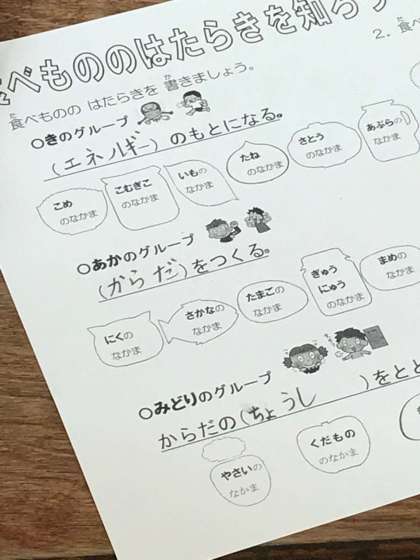 べもののはたらきを知ろう
2. 食
食べものの はたらきを 書きましょう。
○きのグループ
(エネルギー)のもとになる。
こめ
のなかま
こむぎこ
のなかま
いもの
なかま
たね
のなかま
さとう
のなかま
あぶらの
なかま
○あかのグループ
(からだ)をつくる。
にくの
なかま
さかなの
なかま
たまごの
なかま
ぎゅう
にゅう
のなかま
まめの
なかま
○みどりのグループ
からだの(ちょうし)をとと
やさいの
なかま
くだもの
のなかま